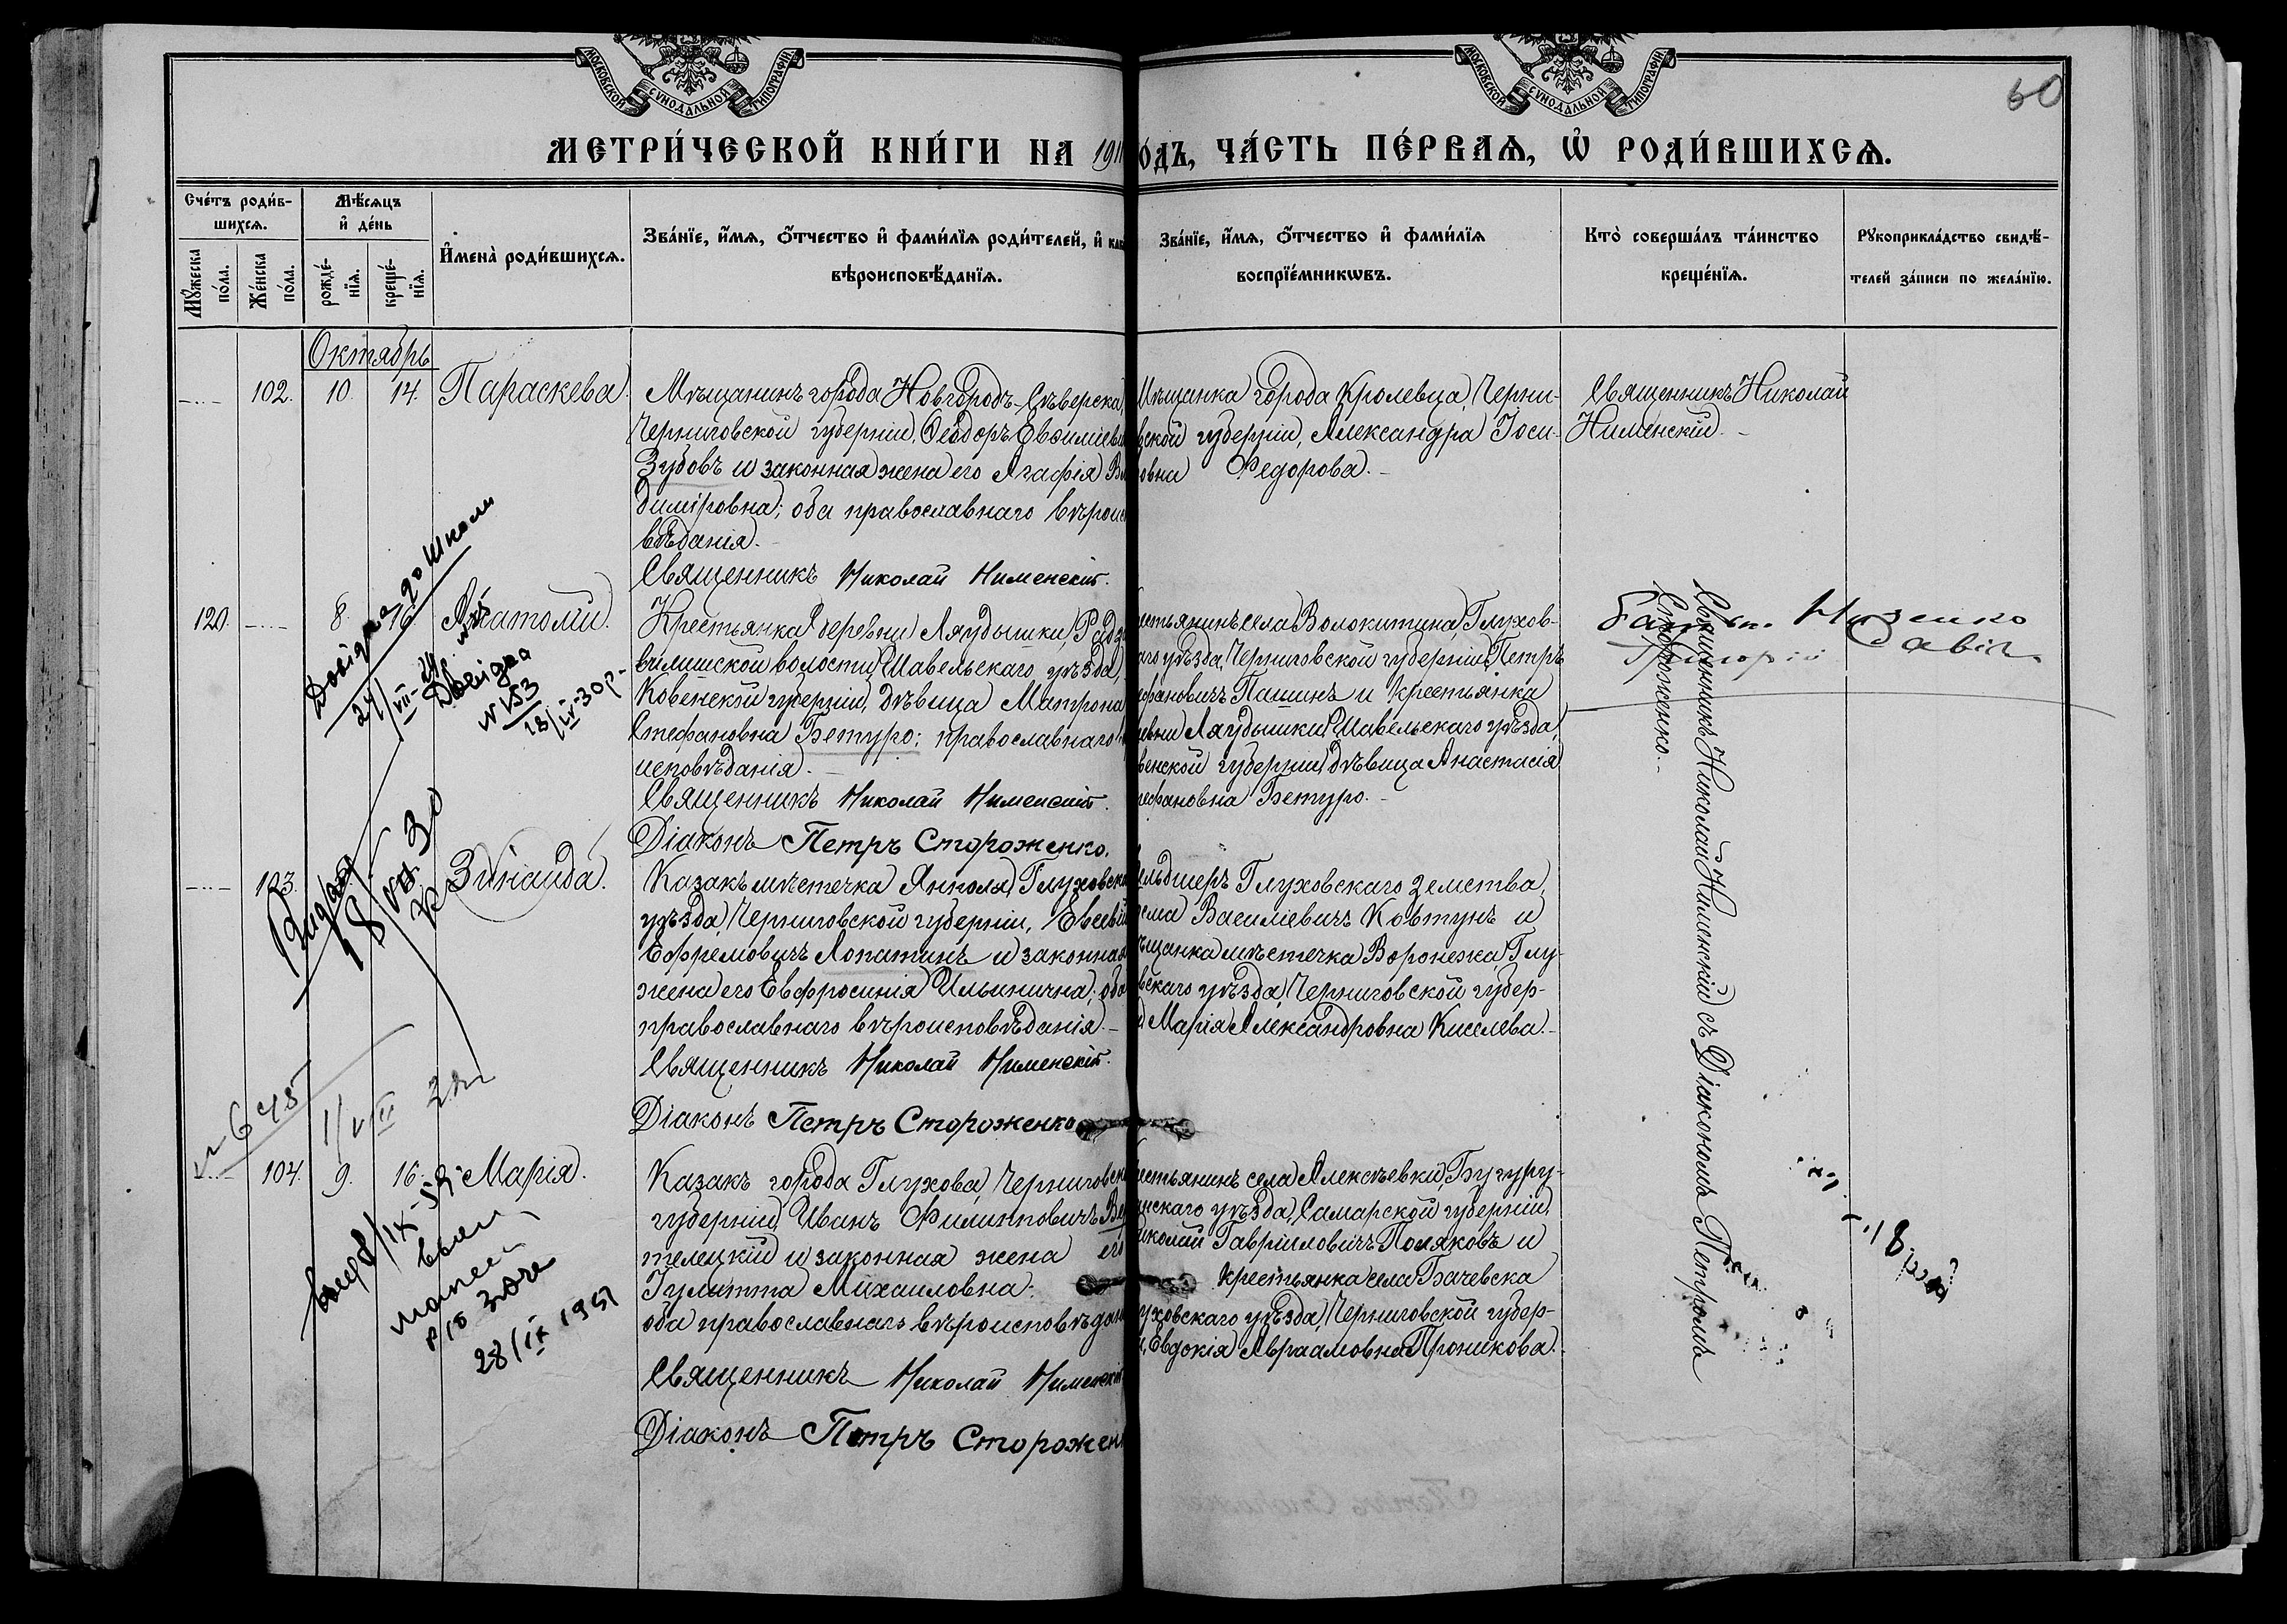 МОСКОВСКОЙ СѴНОДАЛЬНОЙ ТИПОГРАФІИ.
МОСКОВСКОЙ СѴНОДАЛЬНОЙ ТИПОГРАФІИ.
60
МЕТРИ́ЧЕСКОЙ КНИ́ГИ НА 191
ОДЪ, ЧА́СТЬ ПЕ́РВАѦ, Ѡ҆ РОДИ́ВШИХСѦ.
Сче́тъ роди́в-
шихсѧ.
Мꙋ́жеска
по́ла.
Же́нска
по́ла.
Мѣ́сѧцъ
и҆ де́нь
рожде́-
нїѧ.
креще́-
нїѧ.
И҆мена̀ роди́вшихсѧ.
Зва́нїе, и҆́мѧ, ѻ҆́тчество и҆ фами́лїѧ роди́телей, и҆ как
вѣроисповѣ́данїѧ.
Зва́нїе, и҆́мѧ, ѻ҆́тчество и҆ фами́лїѧ
воспрїе́мникѡвъ.
Кто̀ соверша́лъ та́инство
креще́нїѧ.
Рꙋкоприкла́дство свидѣ́-
телей за́писи по жела́нїю.
Октябрь
102. 10. 14. Параскева.
Мѣщанинъ города Новгородъ-Сѣверска,
Черниговской губерніи, Ѳеодоръ Евѳиміеви
Зубовъ и законная жена его Агафія Вла
диміровна; оба православнаго вѣроис
вѣданія.
Священникъ Николай Нименскій.
Мѣщанка города Кролевца, Черни-
вской губерніи, Александра Іоси-
овна Федорова.
Священникъ Николай
Нименскій.
120. 8. 16. Анатолій.
Крестьянка деревни Ляудышки, Радз
вилишской волости, Шавельскаго уѣзда,
Ковенской губерніи, дѣвица Матрона
Стефановна Бетуро; православнаго
исповѣданія.
Священникъ Николай Нименскій.
Діаконъ Петръ Стороженко.
естьянинъ села Волокитина, Глухов-
аго уѣзда, Черниговской губерніи, Петръ
ефановичъ Пашинъ и крестьянка
евни Ляудышки, Шавельскаго уѣзда,
венской губерніи, дѣвица Анастасія
тефановна Бетуро.
Священникъ Николай Нименскій съ Діакономъ Петромъ
Стороженко.
103. Зинаида.
Казакъ мѣстечка Янполя, Глуховска
уѣзда, Черниговской губерніи, Евсевій
Ефремовичъ Лопатинъ и законная
жена его Евфросинія Ильинична; оба
православнаго вѣроисповѣданія.
Священникъ Николай Нименскій.
Діаконъ Петръ Стороженко
ельдшеръ Глуховскаго земства,
ема Василіевичъ Ковтунъ и
ѣщанка мѣстечка Воронежа, Глу-
вскаго уѣзда, Черниговской губер-
Марія Александровна Киселева.
№ 648
104. 9. 16. Марія.
Казакъ города Глухова, Черниговск
губерніи, Иванъ Филипповичъ Ве
телецкій и законная жена его
Іулитта Михаиловна;
оба православнаго вѣроисповѣдан
Священникъ Николай Нименскій
Діаконъ Петръ Стороженк
естьянинъ села Алексѣевки, Бугуру-
нскаго уѣзда, Самарской губерніи,
иколай Гавріиловичъ Поляковъ и
крестьянка села Бачевска
уховскаго уѣзда, Черниговской губер-
и, Евдокія Авраамовна Проникова.
28/IX 1951